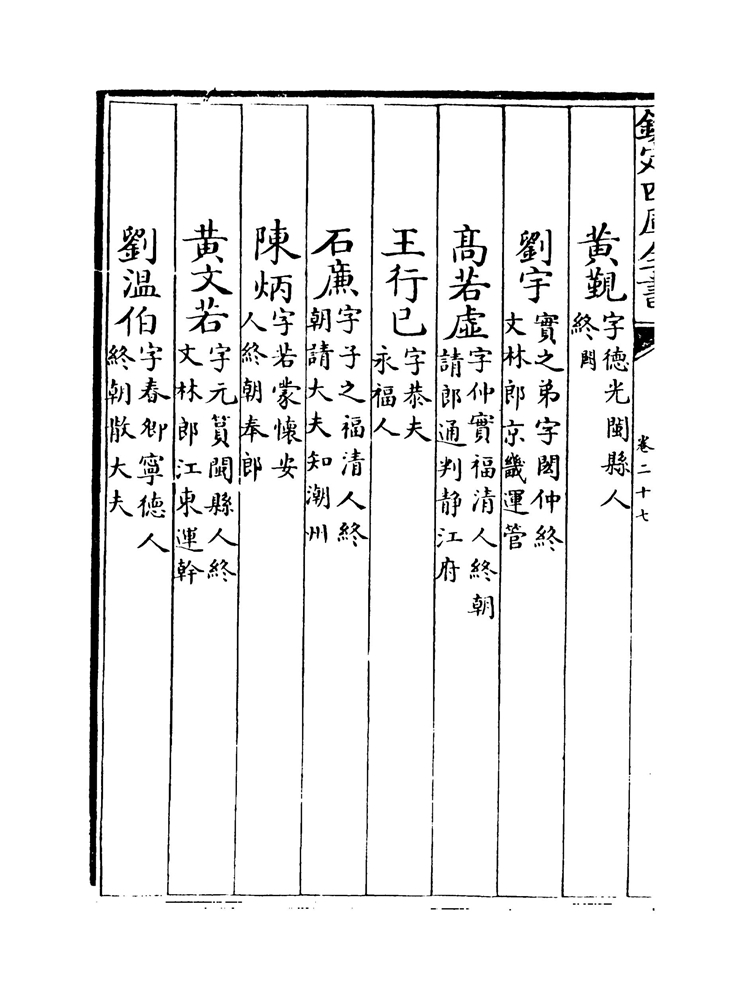 欽定四庫全書
卷二十七
黃覲字德光閩縣人終闕
劉宇實之弟字閎仲終文林郎京畿運管
髙若虛字仲實福清人終朝請郎通判靜江府
王行已字恭夫永福人
石亷字子之福清人終朝請大夫知潮州
陳炳字若蒙懷安人終朝奉郎
黃文若字元篔閩縣人終文林郎江東運幹
劉溫伯字春卿寧德人終朝散大夫